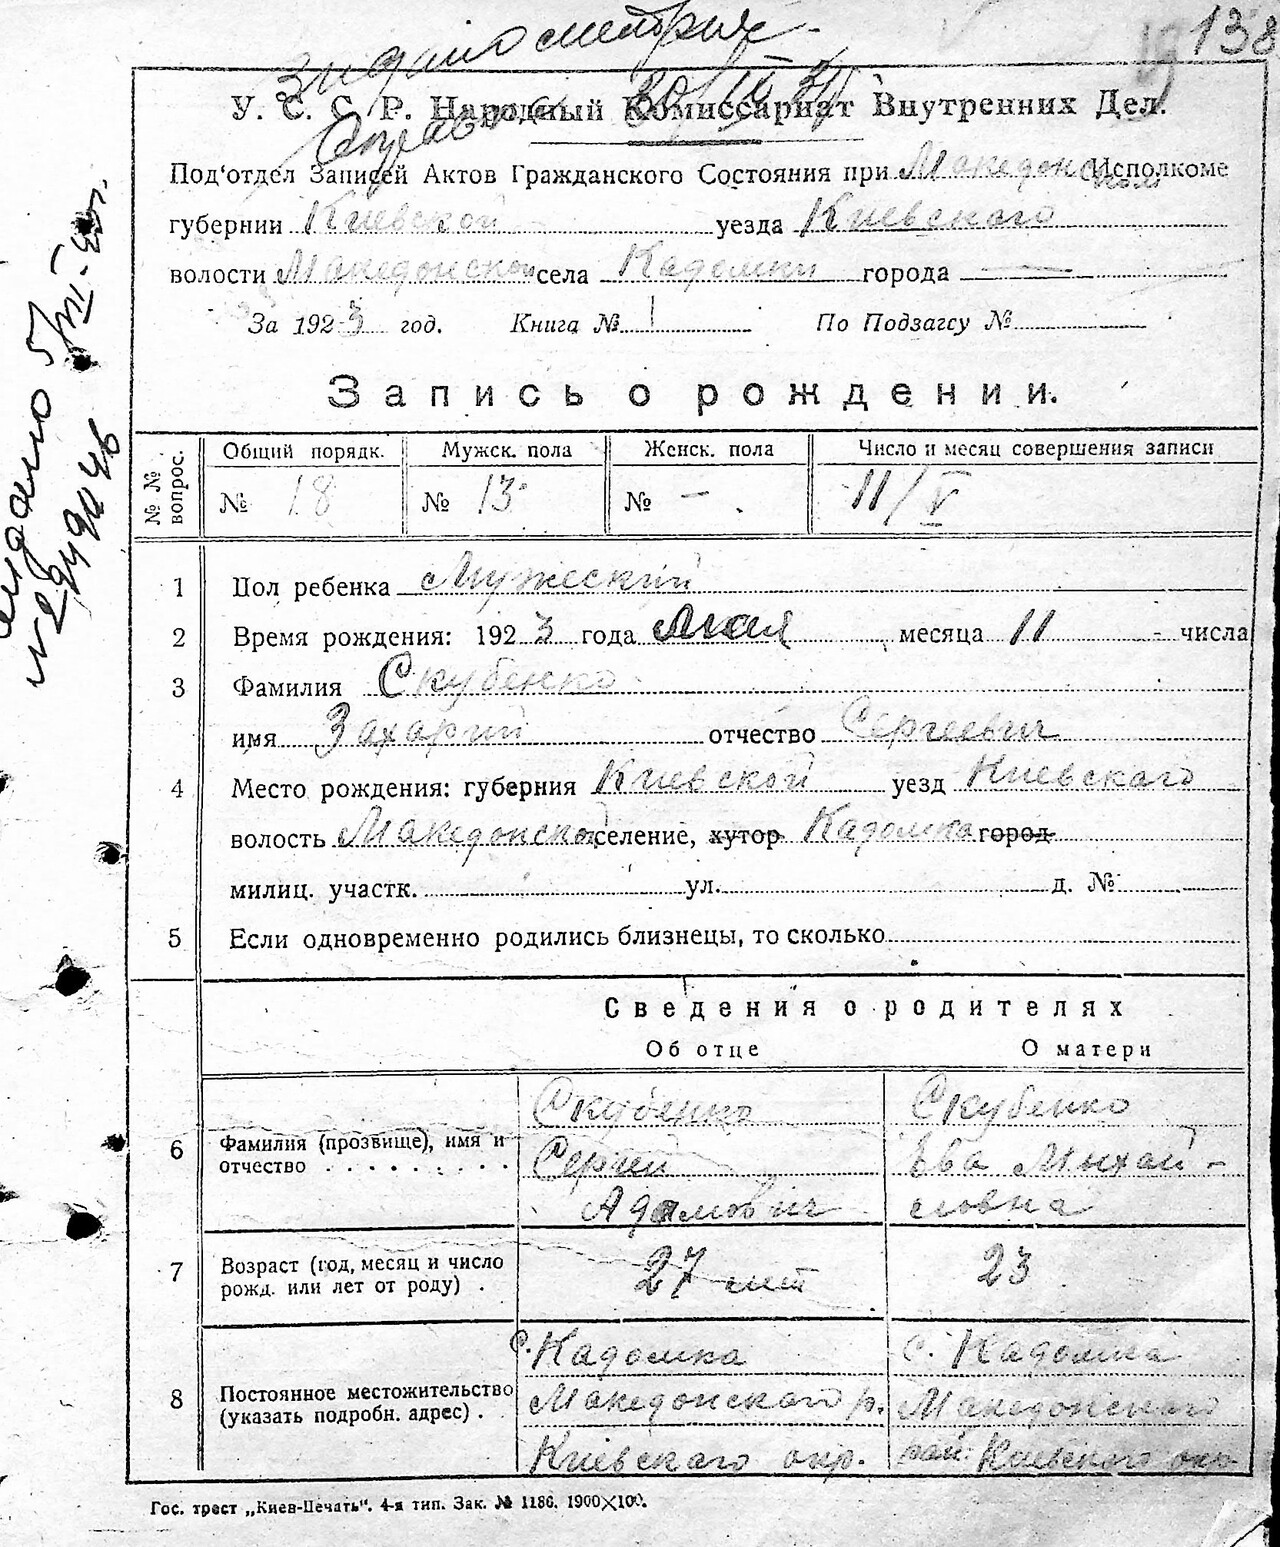 138
У. С. С. Р. Народный Комиссариат Внутренних Дел.
Под'отдел Записей Актов Гражданского Состояния при Македонском Исполкоме
губернии Киевской уезда Киевского
волости Македонской села Кадомки города —
За 1923 год. Книга № 1 По Подзагсу №
Запись о рождении.
№ № вопрос. Общий порядк. Мужск. пола Женск. пола Число и месяц совершения записи
№ 18 № 13 № – 11/V
1 Пол ребенка Мужеский
2 Время рождения: 1923 года Мая месяца 11 - числа
3 Фамилия Скубенко
имя Захарий отчество Сергеевич
4 Место рождения: губерния Киевской уезд Киевскаго
волость Македонской селение, хутор Кадомка город
милиц. участк. ул. д. №
5 Если одновременно родились близнецы, то сколько
Сведения о родителях
Об отце О матери
Скубенко Скубенко
6 Фамилия (прозвище), имя и Сергей Ева Михай-
отчество Адамович ловна
7 Возраст (год, месяц и число 27 лет 23
рожд. или лет от роду)
с. Кадомка с. Кадомка
8 Постоянное местожительство Македонского р. Македонского
(указать подробн. адрес) Киевскаго окр. рай. Киевского окр
Гос. трест „Киев-Печать". 4-я тип. Зак. № 1186. 1900×100.